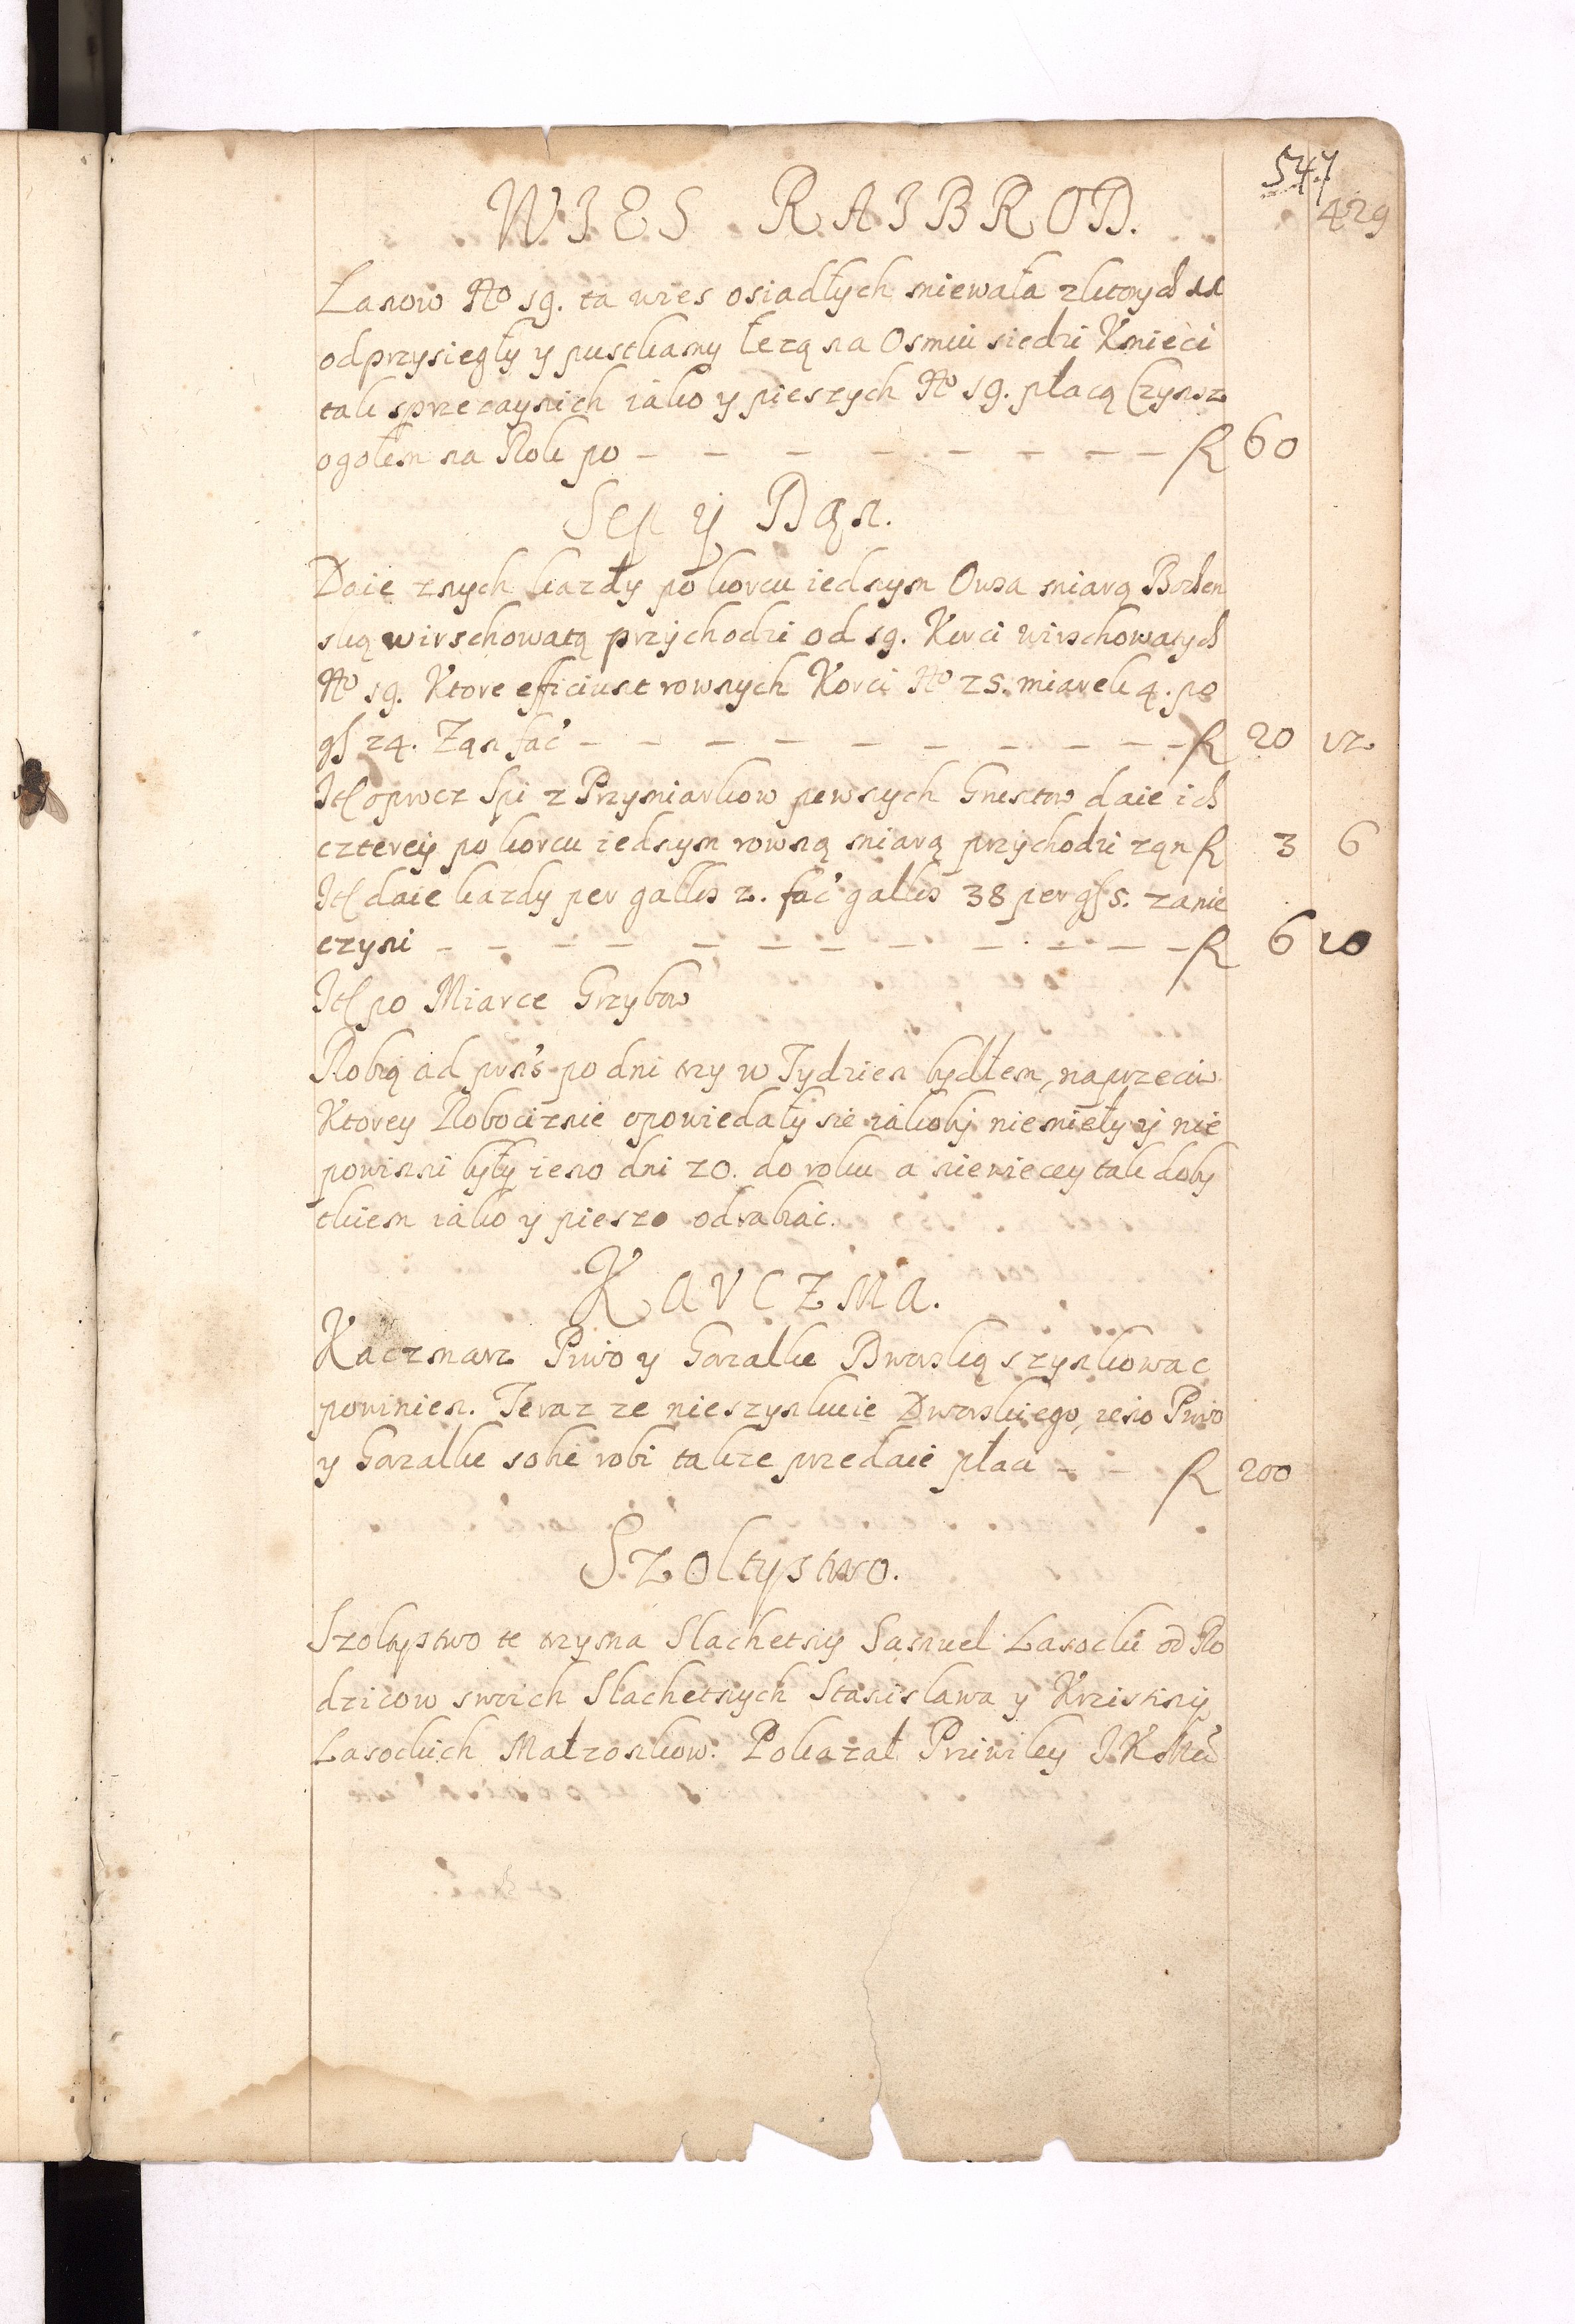 547
429
WIES RAIBROD.
Łanow No 19. ta wies osiadłych miewała z których 11
odprzysiegły y pustkamy leżą na Osmiu siedzi Kmieci
tak sprzezaynich iako y pieszych No 19. płacą Czynsz
ogołem na Rok po - - - - - - - - fl 60
Sep y Dań.
Daie znych kazdy po korcu iednym Owsa miarą Bochen
ską wirschowatą przychodzi od 19. Korci wirschowatych
No 19. Ktore efficiunt rownych Korci No 25. miarek 4. po
gr 24. Zań fac - - - - - - - - fl 20 12
It oprocz Spi z Przymiarkow pewnych Gruntow daie ich
czterej po korcu iednym rowną miarą przychodzi zań fl 3 6
It daie kazdy per gallos 2. fac gallos 38 per gr 5. zanie
czyni - - - - - - - - - - fl 6 10
It po Miarce Grzybow
Robią ad pns po dni trzy w Tydzien bydłem, naprzeciw
Ktorey Robociznie opowiedały sie iakoby niemiely y nie
powinni były ieno dni 20. do roku a niewiecey tak doby
tkiem iako y pieszo odrabiać.
KARCZMA.
Kaczmarz Piwo y Gorzałke Dworską szynkowac
powinien. Teraz ze nieszynkuie Dworskiego, ieno Piwo
y Gorzałke sobie robi takze przedaie płaci - - fl 200
Szoltystwo.
Szoltystwo te trzyma Slachetny Samuel Lasocki od Ro
dzicow swoich Slachetnych Stanislawa y Kristiny
Lasockich Małzonkow. Pokazał Priwiley J.K.